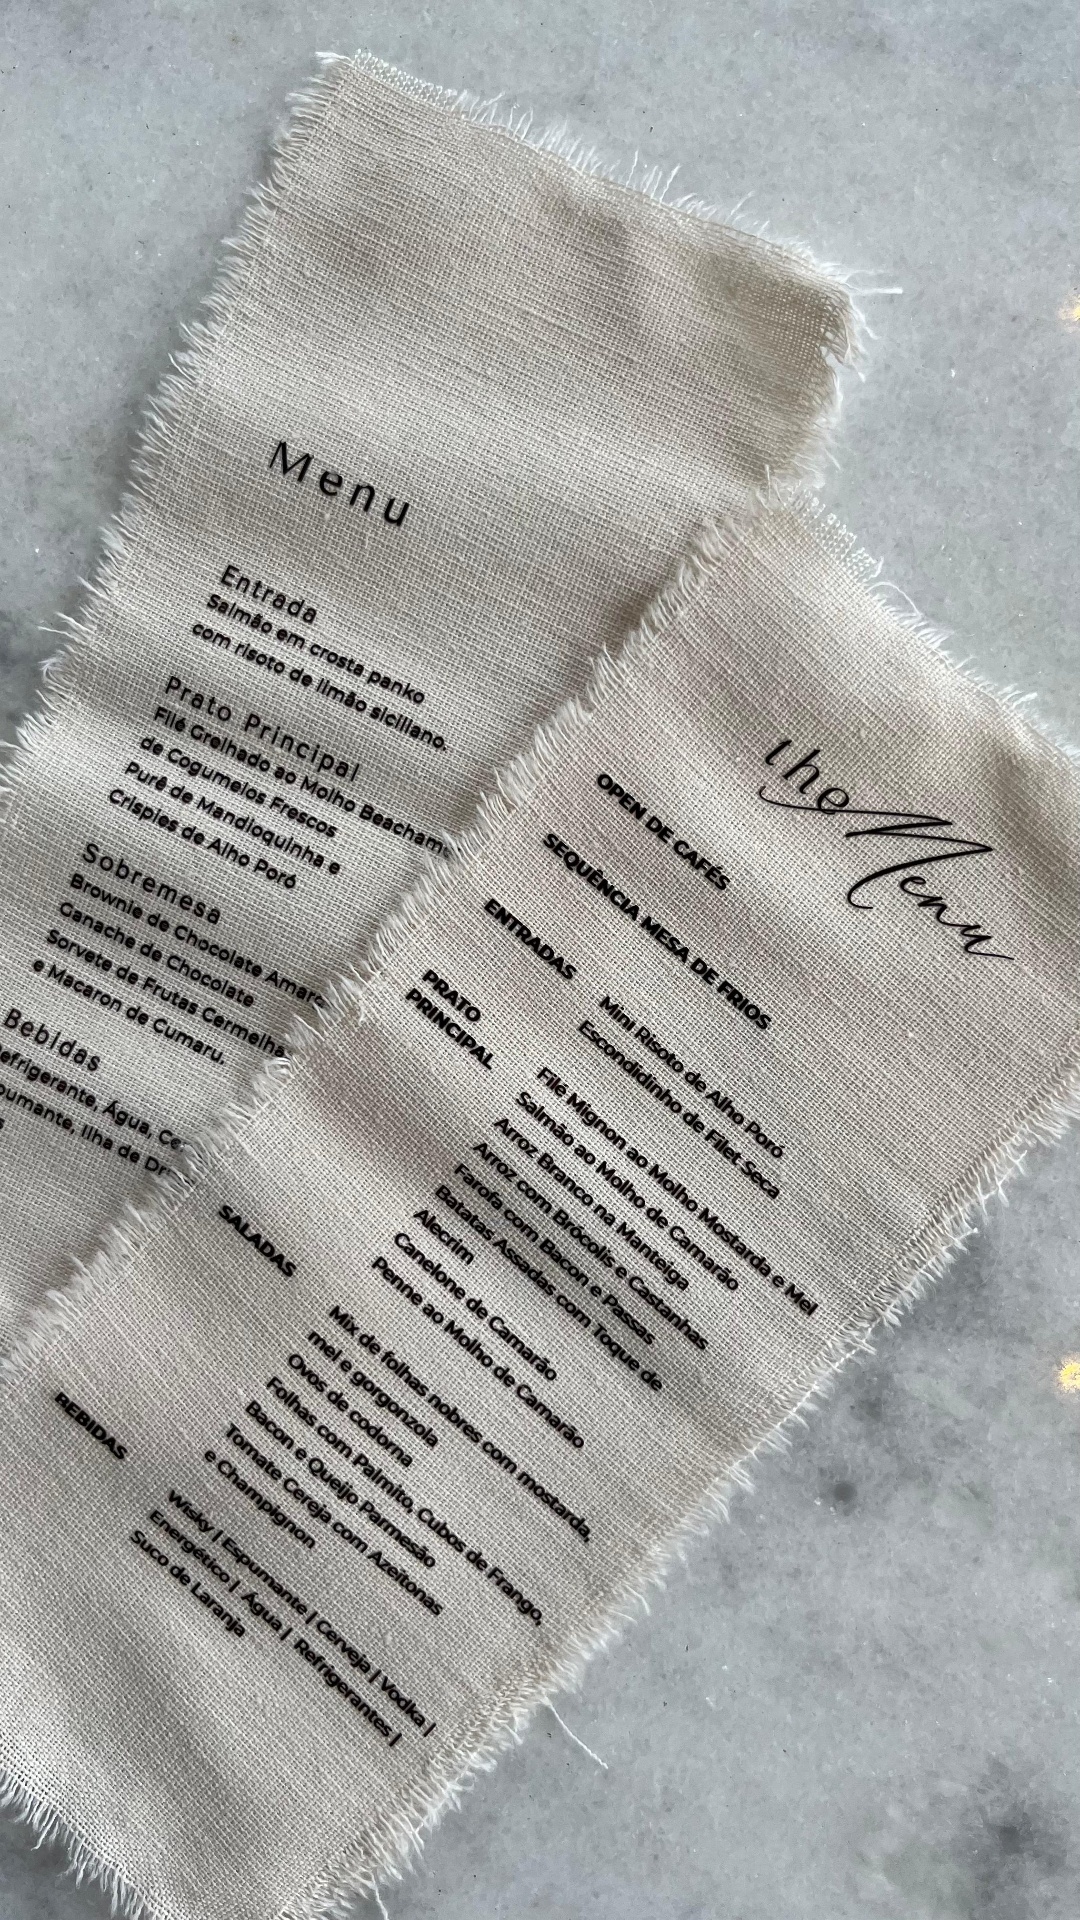 Menu
Entrada
Salmão em crosta panko
com risoto de limão siciliano.
Prato Principal
Filé Grelhado ao Molho
de Cogumelos Frescos
Purê de Mandioquinha e
Crispies de Alho Poró
Sobremesa
Brownie de Chocolate
Ganache de Chocolate
Sorvete de Frutas
e Macaron de Cumaru.
Bebidas
Água,
Ilha de
the Menu
OPEN DE CAFÉS
SEQUÊNCIA MESA DE FRIOS
ENTRADAS
Mini Risoto de Alho Poró
Escondidinho de Filet Seca
PRATO
PRINCIPAL
Filé Mignon ao Molho Mostarda e Mel
Salmão ao Molho de Camarão
Arroz Branco na Manteiga
Arroz com Brócolis e Castanhas
Farofa com Bacon e Passas
Batatas Assadas com Toque de
Alecrim
Canelone de Camarão
Penne ao Molho de Camarão
SALADAS
Mix de folhas nobres com mostarda,
mel e gorgonzola
Ovos de codorna
Folhas com Palmito, Cubos de Frango,
Bacon e Queijo Parmesão
Tomate Cereja com Azeitonas
e Champignon
BEBIDAS
Wisky | Espumante | Cerveja | Vodka |
Energético | Água | Refrigerantes |
Suco de Laranja